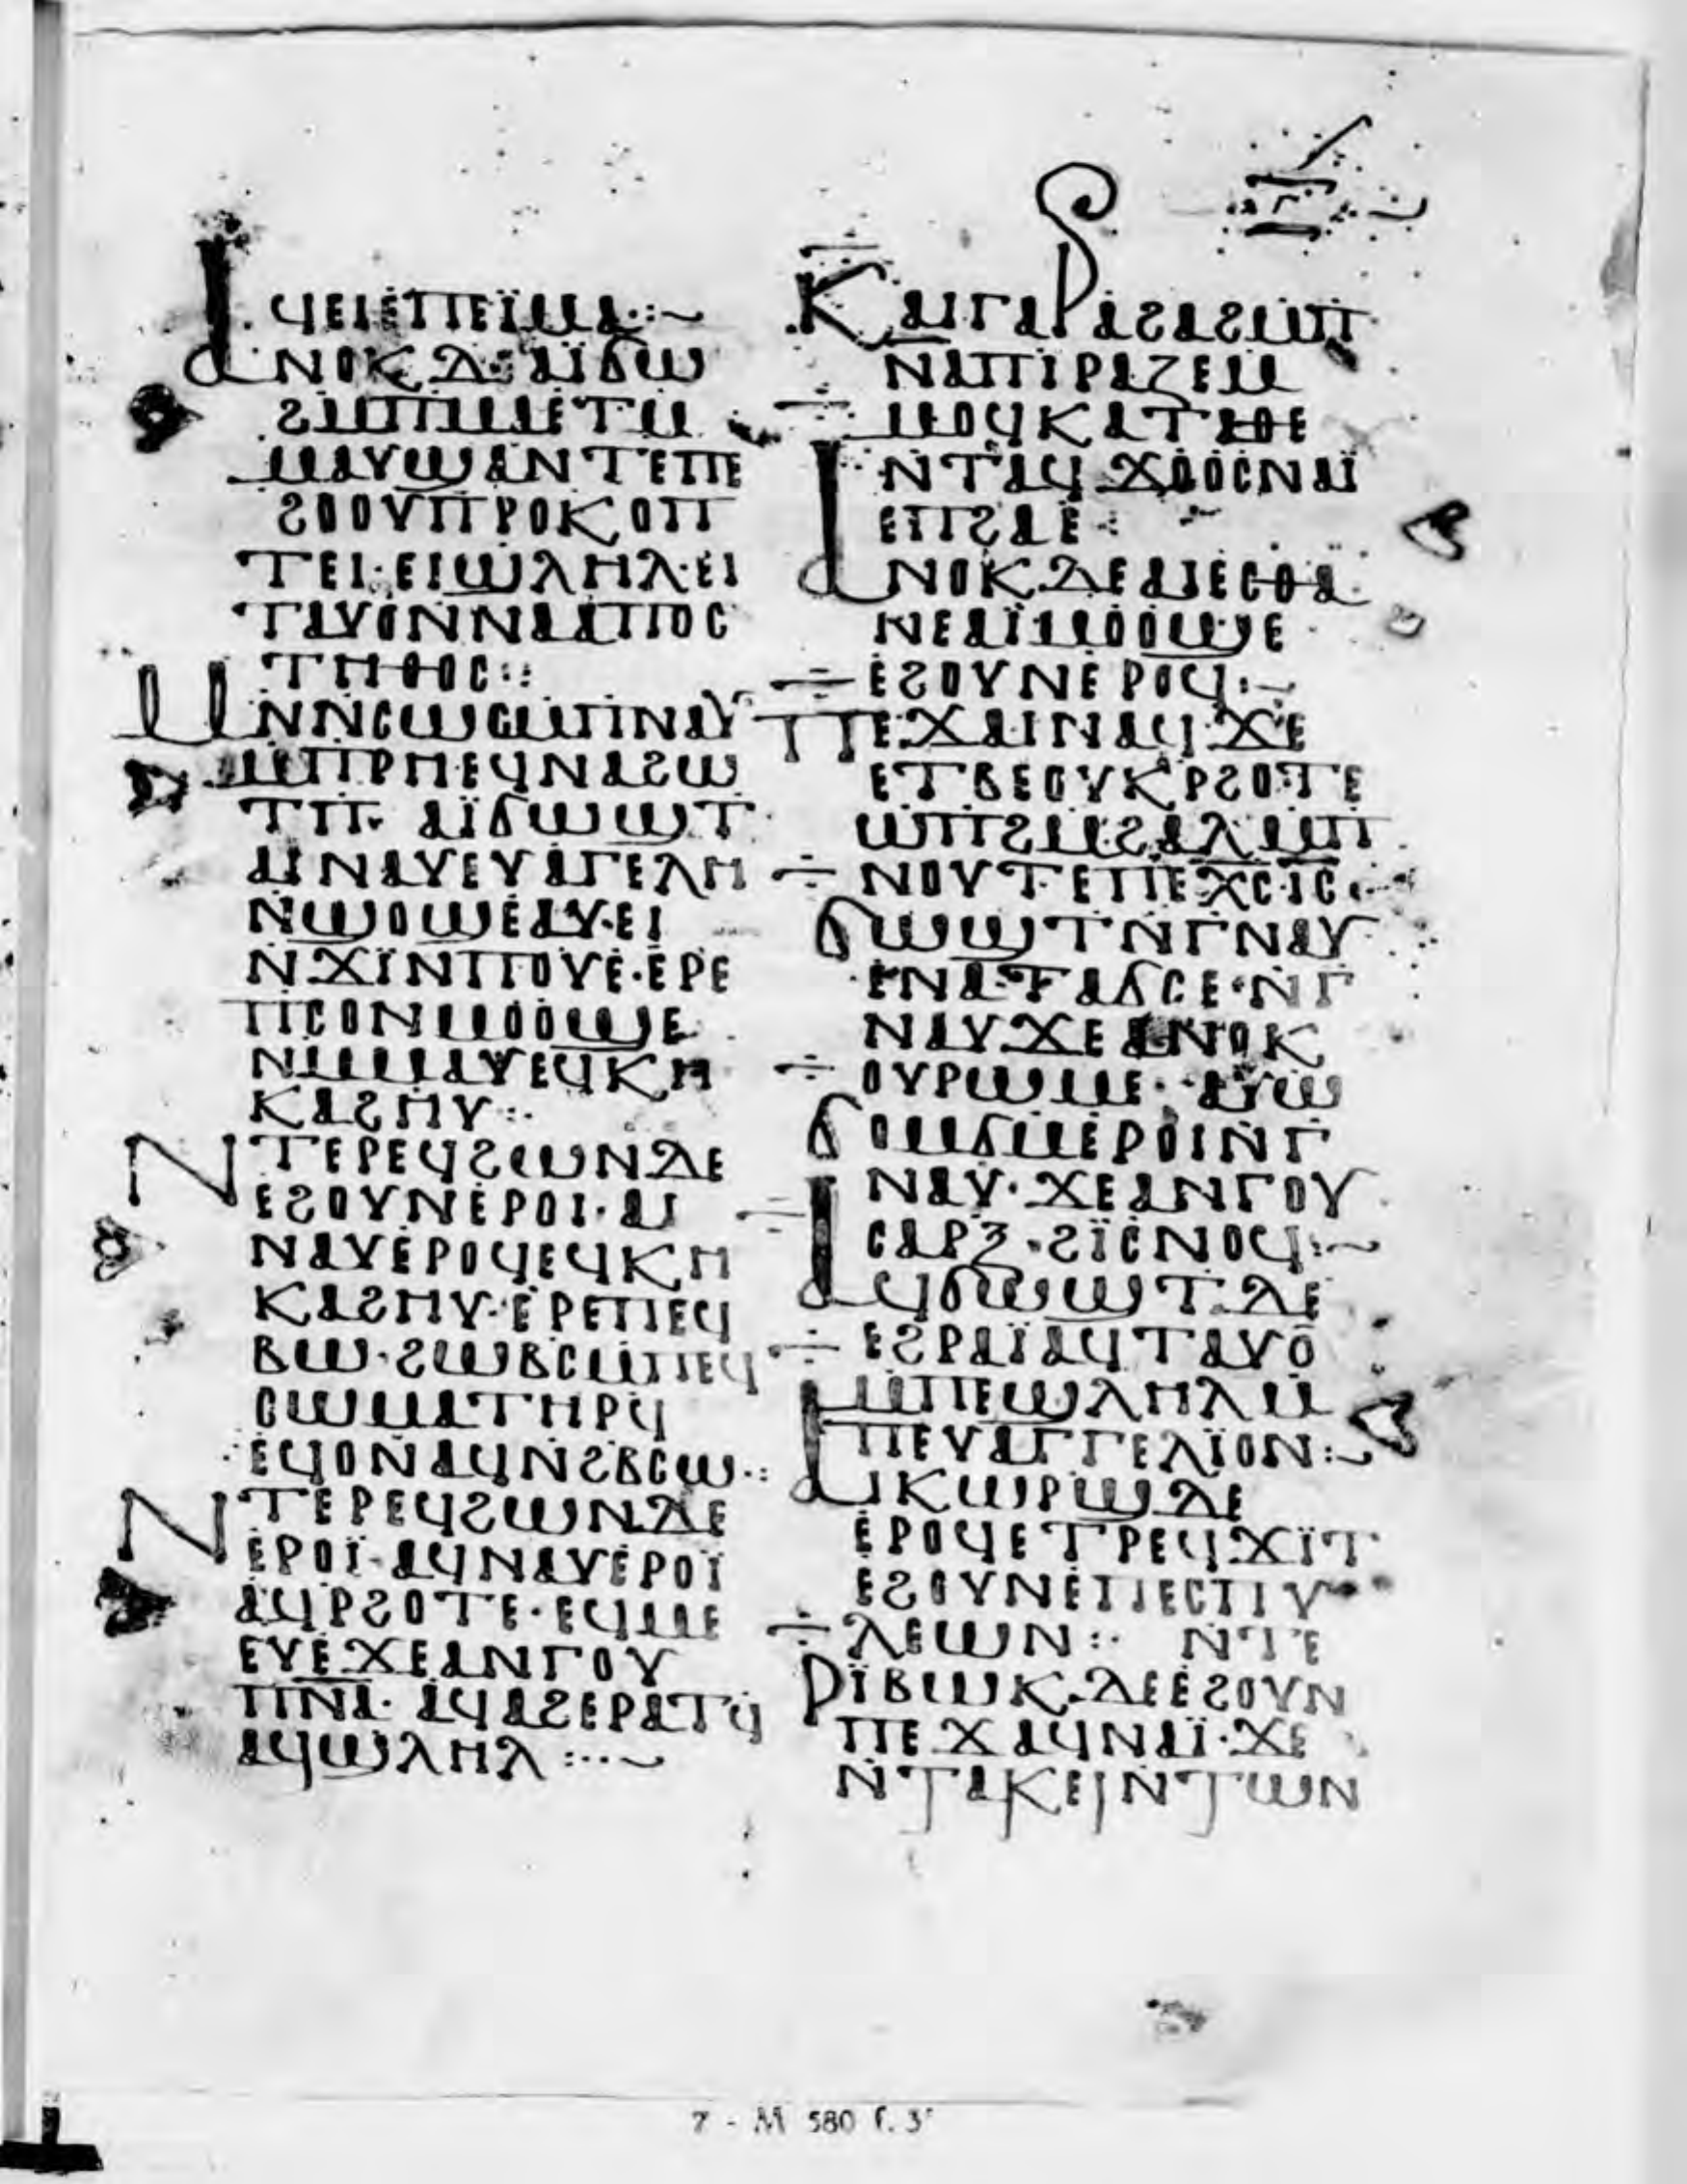 ⲁϥⲉⲓⲉⲡⲉⲓ̈ⲙⲁ·:~
ⲁⲛⲟⲕⲇⲉ·ⲁⲓ̈ϭⲱ
ϩⲙⲡⲙⲁⲉⲧⲙ
ⲙⲁⲩϣⲁⲛⲧⲉⲡⲉ
ϩⲟⲟⲩⲡⲣⲟⲕⲟⲡ
ⲧⲉⲓ·ⲉⲓϣⲗⲏⲗ·ⲉⲓ
ⲧⲁⲩⲟⲛⲛⲁⲡⲟⲥ
ⲧⲏⲑⲟⲥ::
ⲙⲛⲛⲥⲱⲥⲙⲡⲛⲁⲩ
ⲙⲡⲣⲏⲉϥⲛⲁϩⲱ
ⲧⲡ· ⲁⲓ̈ϭⲱϣⲧ
ⲁⲓⲛⲁⲩⲉⲩⲁⲅⲉⲗⲏ
ⲛϣⲟϣⲉⲁⲩ·ⲉⲓ
ⲛϫⲓ̈ⲛⲡⲟⲩⲉ·ⲉⲣⲉ
ⲡⲥⲟⲛⲙⲟⲟϣⲉ
ⲛⲙⲙⲁⲩⲉϥⲕⲏ
ⲕⲁϩⲏⲩ:·
ⲛⲧⲉⲣⲉϥϩⲱⲛⲇⲉ
ⲉϩⲟⲩⲛⲉⲣⲟⲓ·ⲁⲓ
ⲛⲁⲩⲉⲣⲟϥⲉϥⲕⲏ
ⲕⲁϩⲏⲩ·ⲉⲣⲉⲡⲉϥ
ⲃⲱ·ϩⲱⲃⲥⲙⲡⲉϥ
ⲥⲱⲙⲁⲧⲏⲣϥ
ⲉϥⲟⲛⲁϥⲛϩⲃⲥⲱ·:
ⲛⲧⲉⲣⲉϥϩⲱⲛⲇⲉ
ⲉⲣⲟⲓ̈·ⲁϥⲛⲁⲩⲉⲣⲟⲓ̈
ⲁϥⲣϩⲟⲧⲉ·ⲉϥⲙⲉ
ⲉⲩⲉϫⲉⲁⲛⲅⲟⲩ
ⲡⲛⲁ̅· ⲁϥⲁϩⲉⲣⲁⲧϥ
ⲁϥϣⲗⲏⲗ:··~
ⲕⲁⲓⲅⲁⲣⲁϩⲁϩⲙⲡ
ⲛⲁⲡⲓⲣⲁⲍⲉⲙ
ⲙⲟϥⲕⲁⲧⲁⲑⲉ
ⲛⲧⲁϥϫⲟⲟⲥⲛⲁⲓ̈
ⲉⲡϩⲁⲉ·:
ⲁⲛⲟⲕⲇⲉⲁⲓⲉⲥⲑⲁ
ⲛⲉⲁⲓ̈ⲙⲟⲟϣⲉ
ⲉϩⲟⲩⲛⲉⲣⲟϥ:~
ⲡⲉϫⲁⲓⲛⲁϥ·ϫⲉ
ⲉⲧⲃⲉⲟⲩⲕⲣϩⲟⲧⲉ
ⲱⲡϩⲙϩⲁⲗⲙⲡ
ⲛⲟⲩⲧⲉⲡⲉⲭ̅ⲥ̅·ⲓ̅ⲥ̅·
ϭⲱϣⲧⲛⲅⲛⲁⲩ
ⲉⲛⲁⲧⲁϭⲥⲉ·ⲛⲅ
ⲛⲁⲩϫⲉⲁⲛⲟⲕ
ⲟⲩⲣⲱⲙⲉ·ⲁⲩⲱ
ϭⲟⲙϭⲙⲉⲣⲟⲓⲛⲅ
ⲛⲁⲩ·ϫⲉⲁⲛⲅⲟⲩ
ⲥⲁⲣⲝ·ϩⲓ̈ⲥⲛⲟϥ:~
ⲁϥϭⲱϣⲧⲇⲉ
ⲉϩⲣⲁⲓ̈ⲁϥⲧⲁⲩⲟ
ⲙⲡⲉϣⲗⲏⲗⲙ
ⲡⲉⲩⲁⲅⲅⲉⲗⲓ̈ⲟⲛ:~
ⲁⲓⲕⲱⲣϣⲇⲉ
ⲉⲣⲟϥⲉⲧⲣⲉϥϫⲓ̈ⲧ
ⲉϩⲟⲩⲛⲉⲡⲉⲥⲡⲩ
ⲗⲉⲱⲛ:· ⲛⲧⲉ
ⲣⲓ̈ⲃⲱⲕ·ⲇⲉⲉϩⲟⲩⲛ
ⲡⲉϫⲁϥⲛⲁⲓ̈·ϫⲉ
ⲛⲧⲁⲕⲉⲓⲛⲧⲱⲛ
7 - M 580 f. 3ʳ